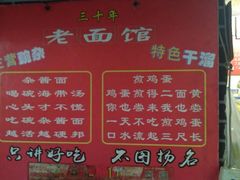 三十年
老面馆
宜宾燃杂
特色干溜
杂酱面
喝碗海带汤
心头才不慌
吃碗杂酱面
越活越硬邦
煎鸡蛋
鸡蛋煎得二面黄
你也尝来我也尝
一天不吃煎鸡蛋
口水流起三尺长
只讲好吃
不图扬名